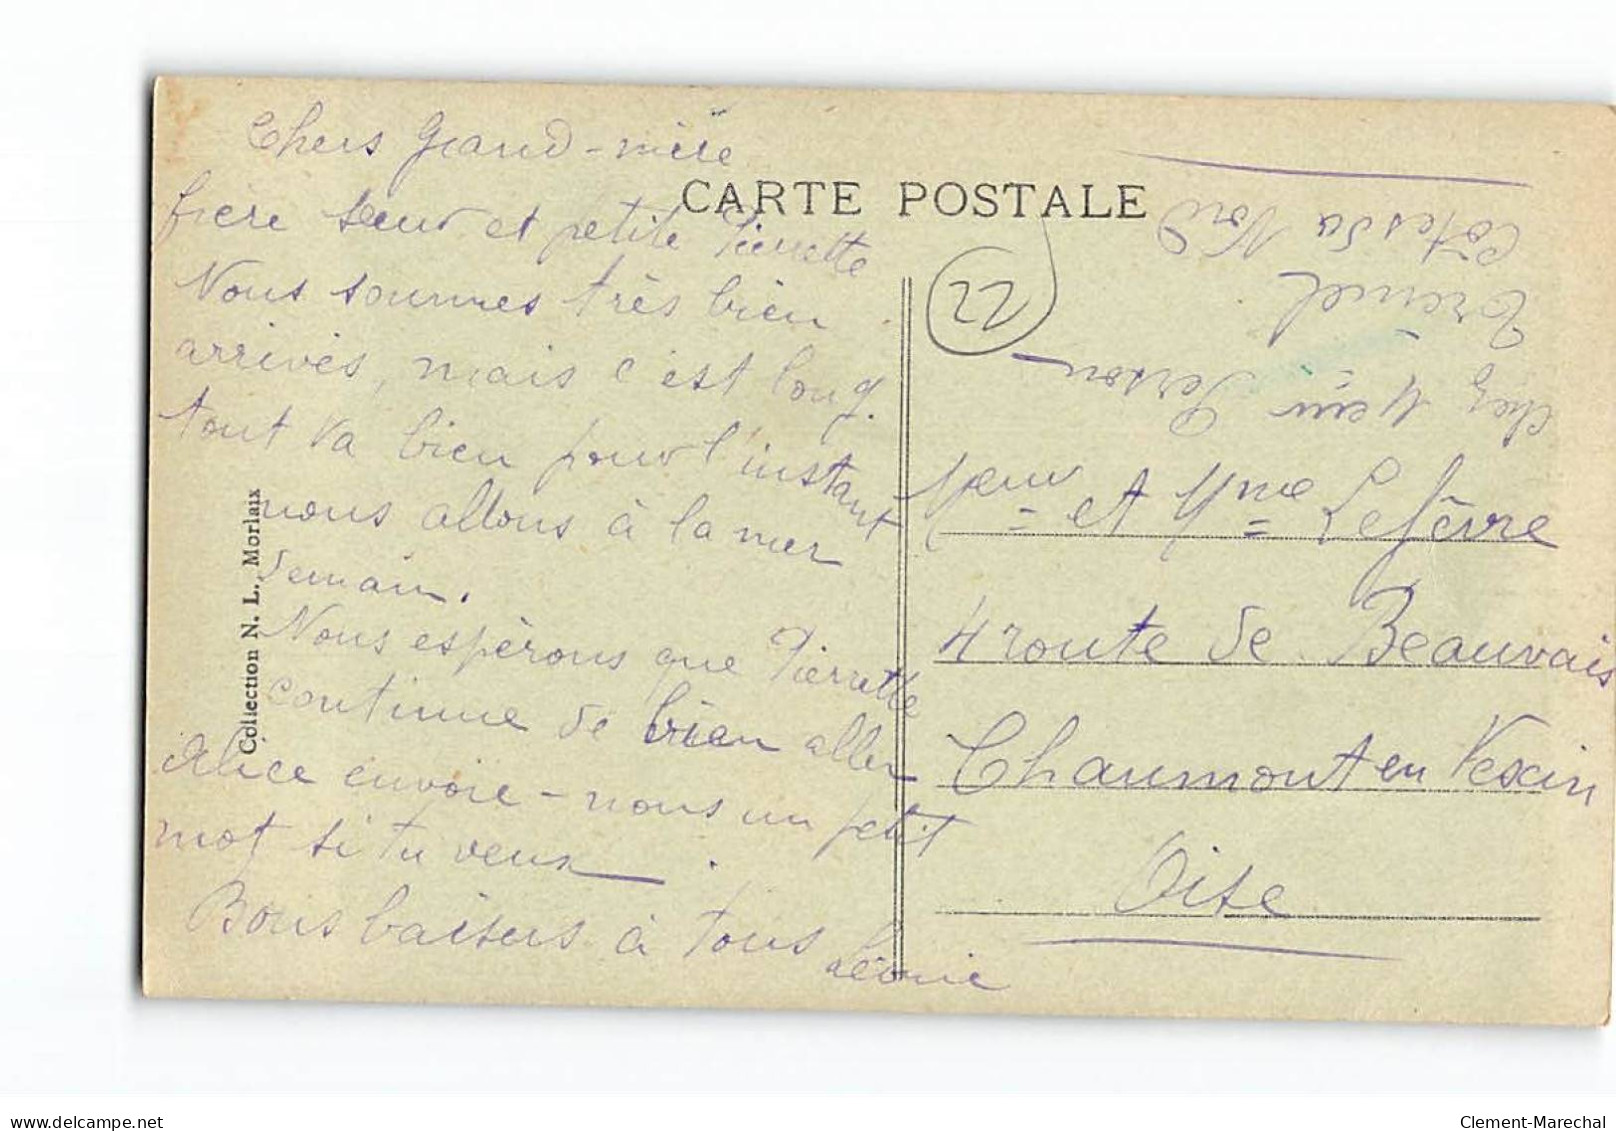 CARTE POSTALE
Chers Grand-mère
frère sœur et petite Pierrette
Nous sommes très bien
arrivés, mais c'est long.
tout va bien pour l'instant
nous allons à la mer
demain.
Nous espèrons que Pierrette
continue de bien aller
Alice envoie-nous un petit
mot si tu veux
Bons baisers à tous
Léonie
Collection N. L., Morlaix
22
Chez Meur Person
Trémel
Côtes du Nord
Meur et Mme Lefèvre
4 route de Beauvais
Chaumont en Vexin
Oise
www.delcampe.net
Clement-Marechal